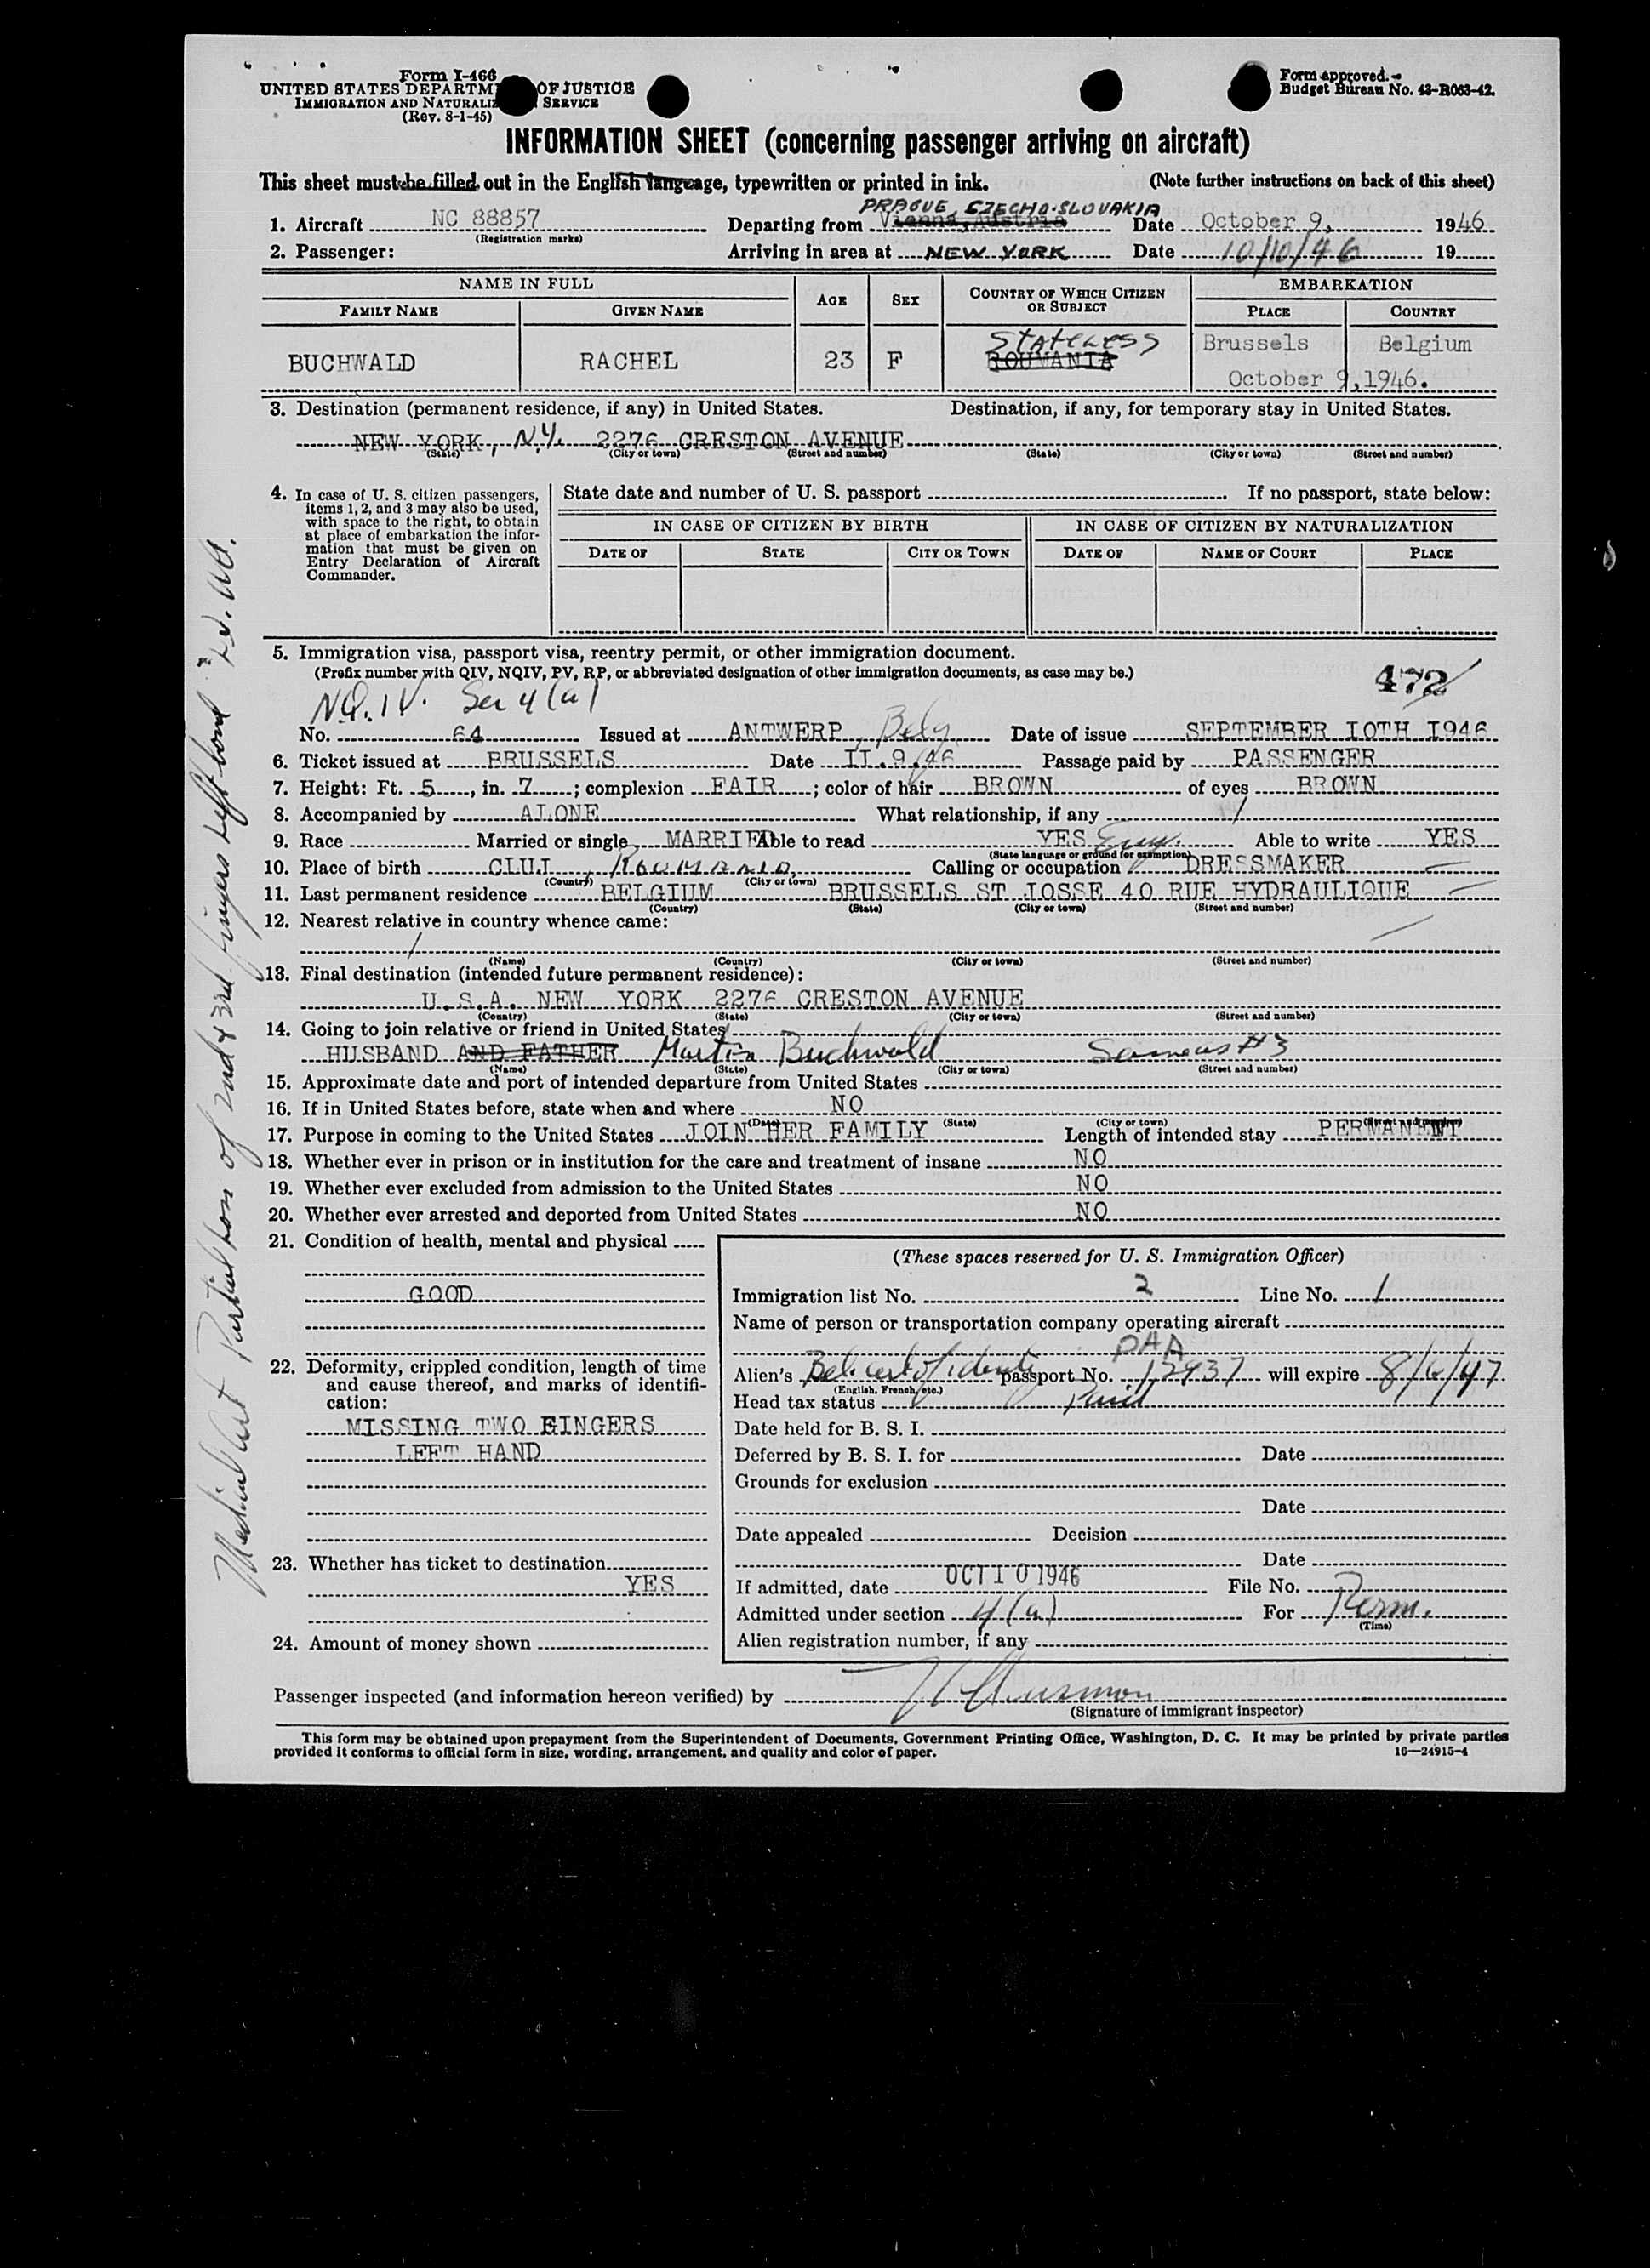 Form I-466
UNITED STATES DEPARTM OF JUSTICE
IMMIGRATION AND NATURALIZ SERVICE
(Rev. 8-1-45)
Form approved.
Budget Bureau No. 43-R063-42.
INFORMATION SHEET (concerning passenger arriving on aircraft)
This sheet must be filled out in the English language, typewritten or printed in ink. (Note further instructions on back of this sheet)
PRAGUE, CZECHO-SLOVAKIA
1. Aircraft NC 88857 Departing from Vienna, Austria Date October 9, 1946
(Registration marks)
2. Passenger: Arriving in area at NEW YORK Date 10/10/46 19
NAME IN FULL AGE SEX COUNTRY OF WHICH CITIZEN OR SUBJECT EMBARKATION
FAMILY NAME GIVEN NAME PLACE COUNTRY
STATELESS Brussels Belgium
BUCHWALD RACHEL 23 F ROUMANIA
October 9, 1946.
3. Destination (permanent residence, if any) in United States. Destination, if any, for temporary stay in United States.
NEW YORK, N.Y. 2276 CRESTON AVENUE
(State) (City or town) (Street and number) (State) (City or town) (Street and number)
4. In case of U. S. citizen passengers, items 1, 2, and 3 may also be used, with space to the right, to obtain at place of embarkation the information that must be given on Entry Declaration of Aircraft Commander.
State date and number of U. S. passport If no passport, state below:
IN CASE OF CITIZEN BY BIRTH IN CASE OF CITIZEN BY NATURALIZATION
DATE OF STATE CITY OR TOWN DATE OF NAME OF COURT PLACE
5. Immigration visa, passport visa, reentry permit, or other immigration document.
(Prefix number with QIV, NQIV, PV, RP, or abbreviated designation of other immigration documents, as case may be.)
472
NQ.IV. Sec 4(a)
No. 64 Issued at ANTWERP, Belg Date of issue SEPTEMBER IOTH I946
6. Ticket issued at BRUSSELS Date II.9.46 Passage paid by PASSENGER
7. Height: Ft. 5, in. 7; complexion FAIR; color of hair BROWN of eyes BROWN
8. Accompanied by ALONE What relationship, if any /
9. Race Married or single MARRIED Able to read YES Eng. Able to write YES
(State language or ground for exemption)
10. Place of birth CLUJ, ROUMANIA Calling or occupation DRESSMAKER
(Country) (City or town)
11. Last permanent residence BELGIUM BRUSSELS ST JOSSE 40 RUE HYDRAULIQUE
(Country) (State) (City or town) (Street and number)
12. Nearest relative in country whence came:
/
(Name) (Country) (City or town) (Street and number)
13. Final destination (intended future permanent residence):
U.S.A. NEW YORK 2276 CRESTON AVENUE
(Country) (State) (City or town) (Street and number)
14. Going to join relative or friend in United States
HUSBAND AND FATHER Martin Buchwald Same as #3
(Name) (State) (City or town) (Street and number)
15. Approximate date and port of intended departure from United States
16. If in United States before, state when and where NO
(Date) (State) (City or town)
17. Purpose in coming to the United States JOIN HER FAMILY Length of intended stay PERMANENT
18. Whether ever in prison or in institution for the care and treatment of insane NO
19. Whether ever excluded from admission to the United States NO
20. Whether ever arrested and deported from United States NO
21. Condition of health, mental and physical
GOOD
22. Deformity, crippled condition, length of time and cause thereof, and marks of identification:
MISSING TWO FINGERS
LEFT HAND
23. Whether has ticket to destination
YES
24. Amount of money shown
(These spaces reserved for U. S. Immigration Officer)
Immigration list No. 2 Line No. 1
Name of person or transportation company operating aircraft
PAA
Alien's Bel. cert of identity passport No. 12937 will expire 8/6/47
(English, French, etc.)
Head tax status Paid
Date held for B. S. I.
Deferred by B. S. I. for Date
Grounds for exclusion
Date
Date appealed Decision
Date
If admitted, date OCT 10 1946 File No.
Admitted under section 4(a) For Perm.
(Time)
Alien registration number, if any
Passenger inspected (and information hereon verified) by
(Signature of immigrant inspector)
This form may be obtained upon prepayment from the Superintendent of Documents, Government Printing Office, Washington, D. C. It may be printed by private parties
provided it conforms to official form in size, wording, arrangement, and quality and color of paper. 16—24915-4
Medical Cert Partial loss of 2nd & 3rd fingers left hand